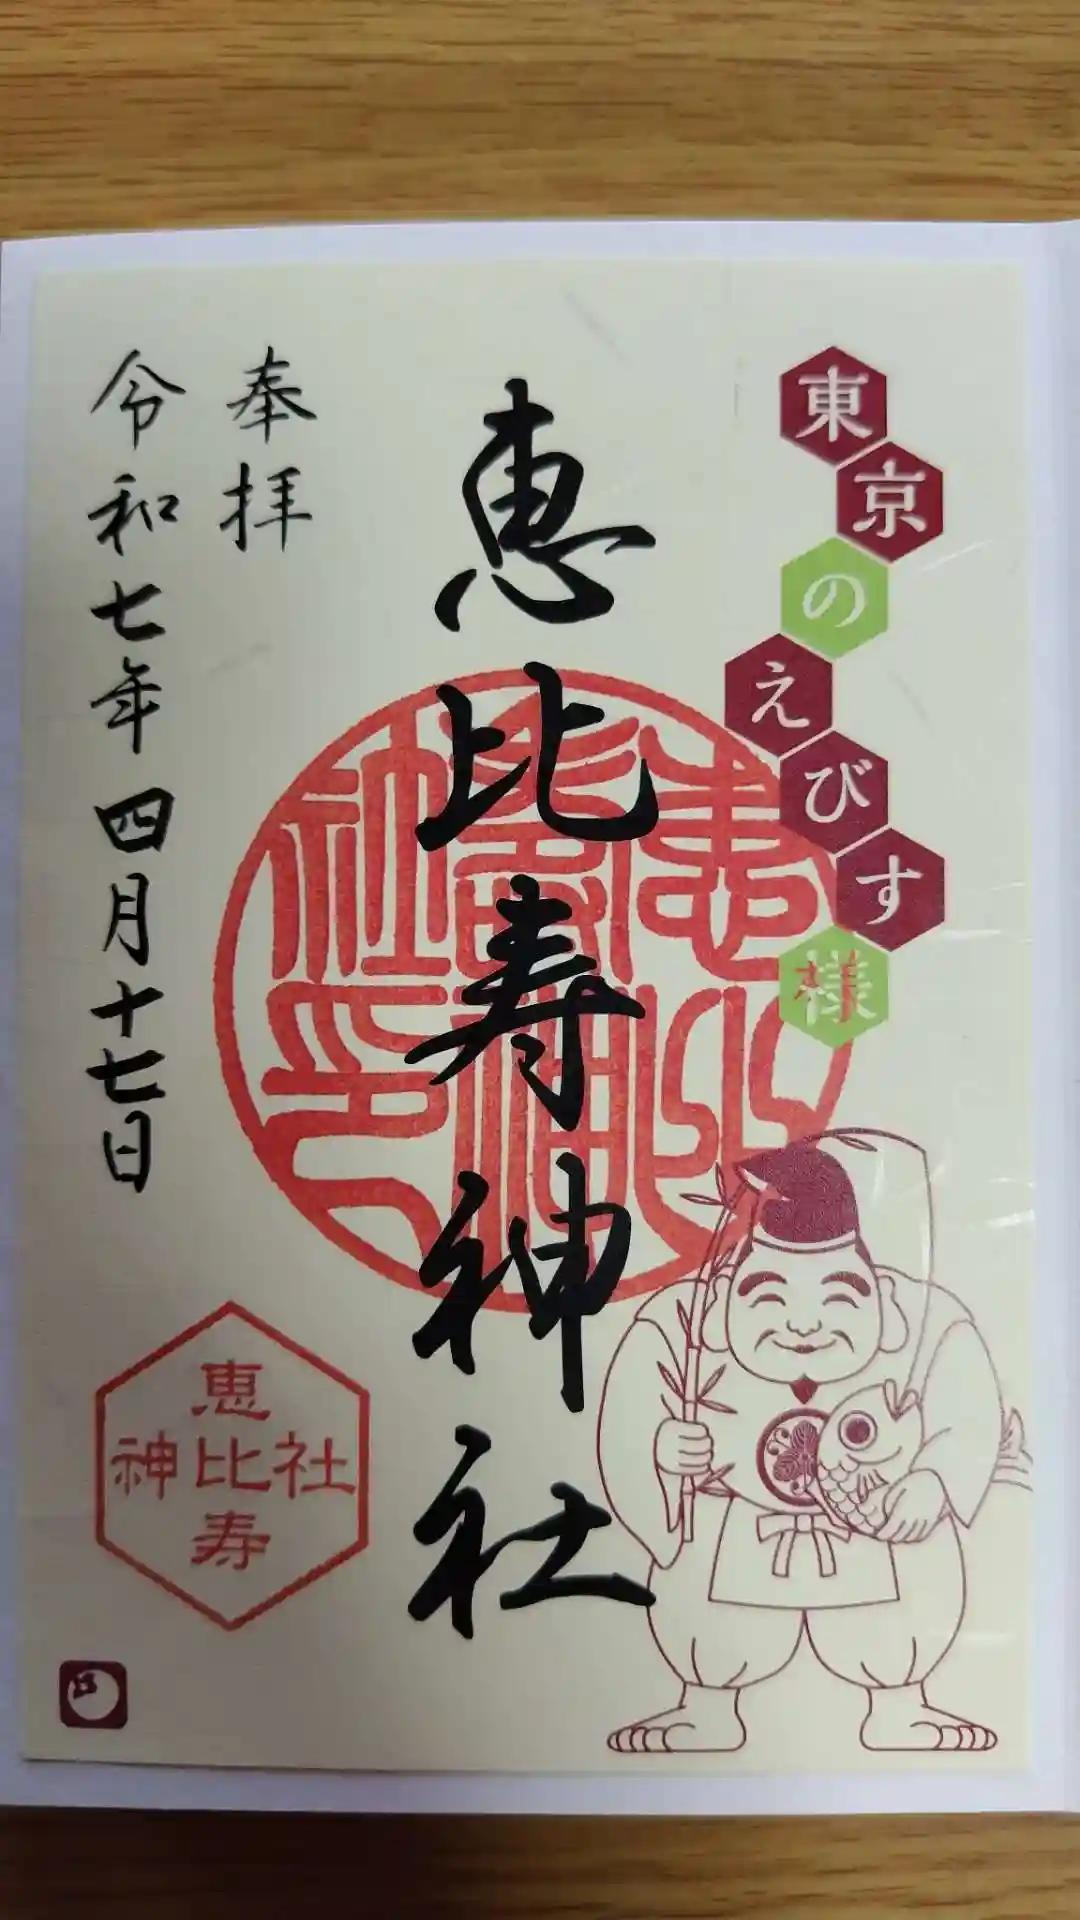 東京のえびす様
恵比寿神社
奉拝
令和七年四月十七日
恵比寿神社印
恵比寿
神社